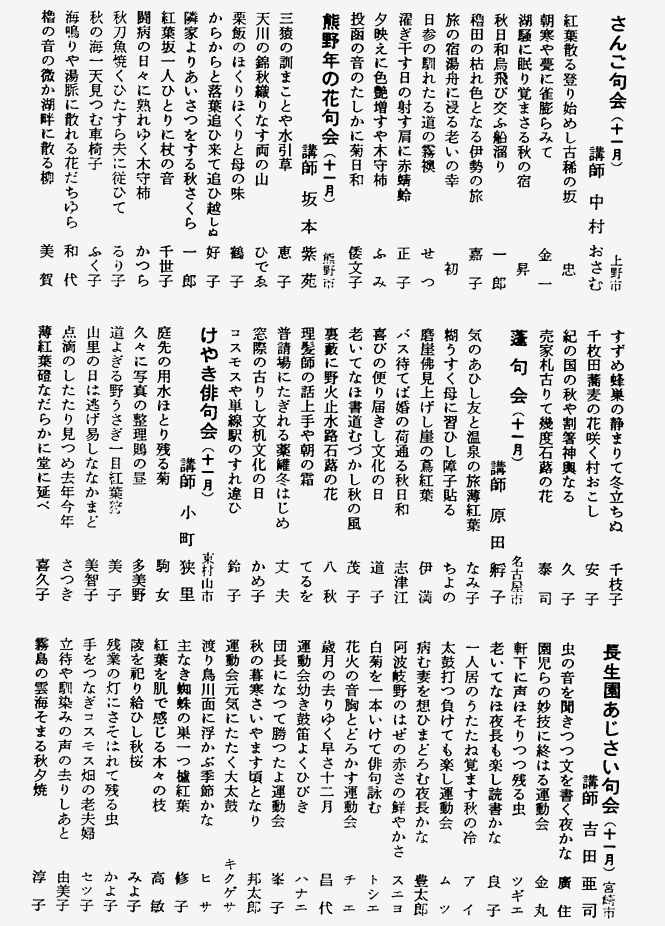 さんご句会（十一月） 上野市
講師 中村 おさむ
紅葉散る登り始めし古稀の坂 忠
朝寒や甍に雀膨らみて 金一
湖騒に眠り覚まさる秋の宿 昇
秋日和鳥飛び交ふ船溜り 一郎
穭田の枯れ色となる伊勢の旅 嘉子
旅の宿湯舟に浸る老いの幸 初
日参の馴れたる道の霧襖 せつ
濯ぎ干す日の射す肩に赤蜻蛉 正子
夕映えに色艶増すや木守柿 ふみ
投函の音のたしかに菊日和 倭文子
熊野年の花句会（十一月） 熊野市
講師 坂本 紫苑
三猿の訓まことや水引草 恵子
天川の錦秋織りなす両の山 ひでゑ
栗飯のほくりほくりと母の味 鶴子
からからと落葉追ひ来て追ひ越しぬ 好子
隣家よりあいさつをする秋さくら 一郎
紅葉坂一人ひとりに杖の音 千世子
闘病の日々に熟れゆく木守柿 かつら
秋刀魚焼くひたすら夫に従ひて るり子
秋の海一天見つむ車椅子 ふく子
海鳴りや湯脈に散れる花だちゆら 和代
櫓の音の微か湖畔に散る柳 美賀
すずめ蜂巣の静まりて冬立ちぬ 千枝子
千枚田蕎麦の花咲く村おこし 安子
紀の国の秋や割箸神輿なる 久子
売家札古りて幾度石蕗の花 泰司
蓬句会（十一月） 名古屋市
講師 原田 孵子
気のあひし友と温泉の旅薄紅葉 なみ子
糊うすく母に習ひし障子貼る ちよの
磨崖佛見上げし崖の蔦紅葉 伊満
バス待てば婚の荷通る秋日和 志津江
喜びの便り届きし文化の日 道子
老いてなほ書道むづかし秋の風 茂子
裏藪に野火止水路石蕗の花 八秋
理髪師の話上手や朝の霜 てるを
普請場にたぎれる薬罐冬はじめ 丈夫
窓際の古りし文机文化の日 かめ子
コスモスや単線駅のすれ違ひ 鈴子
けやき俳句会（十一月） 東村山市
講師 小町 狭里
庭先の用水ほとり残る菊 駒女
久々に写真の整理鵙の昼 多美野
道よぎる野うさぎ一日紅葉狩 美子
山里の日は逃げ易しななかまど 美智子
点滴のしたたり見つめ去年今年 さつき
薄紅葉磴なだらかに堂に延べ 喜久子
長生園あじさい句会（十一月） 宮崎市
講師 吉田 亜司
虫の音を聞きつつ文を書く夜かな 廣住
園児らの妙技に終はる運動会 金丸
軒下に声ほそりつつ残る虫 ツギエ
老いてなほ夜長も楽し読書かな 良子
一人居のうたたね覚ます秋の冷 アイ
太鼓打つ負けても楽し運動会 ムツ
病む妻を想ひまどろむ夜長かな 豊太郎
阿波岐野のはぜの赤さの鮮やかさ スニヨ
白菊を一本いけて俳句詠む トシエ
花火の音胸とどろかす運動会 チエ
歳月の去りゆく早さ十二月 昌代
運動会幼き鼓笛よくひびき ハナエ
団長になつて勝つたよ運動会 峯子
秋の暮寒さいやます頃となり 邦太郎
運動会元気にたたく大太鼓 キクゲサ
渡り鳥川面に浮かぶ季節かな ヒサ
主なき蜘蛛の巣一つ櫨紅葉 修子
紅葉を肌で感じる木々の枝 高敏
陵を祀り給ひし秋桜 みよ子
残業の灯にさそはれて残る虫 かよ子
手をつなぎコスモス畑の老夫婦 セツ子
立待や馴染みの声の去りしあと 由美子
霧島の雲海そまる秋夕焼 淳子